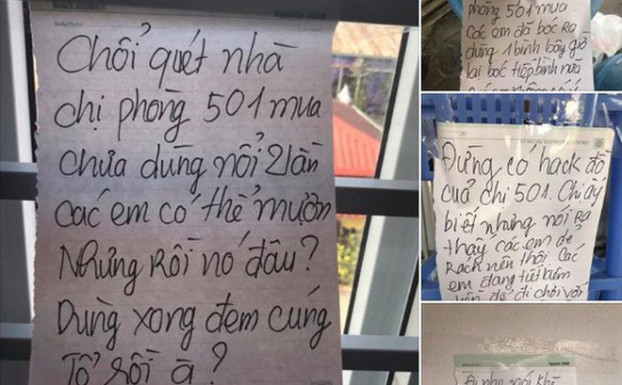 Chổi quét nhà
chị phòng 501 mua
chưa dùng nổi 2 lần
các em có thể mượn
Nhưng Rồi nó đâu?
Dùng xong đem cúng
Tổ rồi à?
phòng 501 mua
các em đã bóc ra
dùng 1 bình bây giờ
lại bóc tiếp bình nữa
Đừng có hack đồ
của chị 501. Chị ấy
biết nhưng nói ra
thấy các em dẻ
Rách nên thôi. Các
em đang tiết kiệm
tiền để đi chơi với